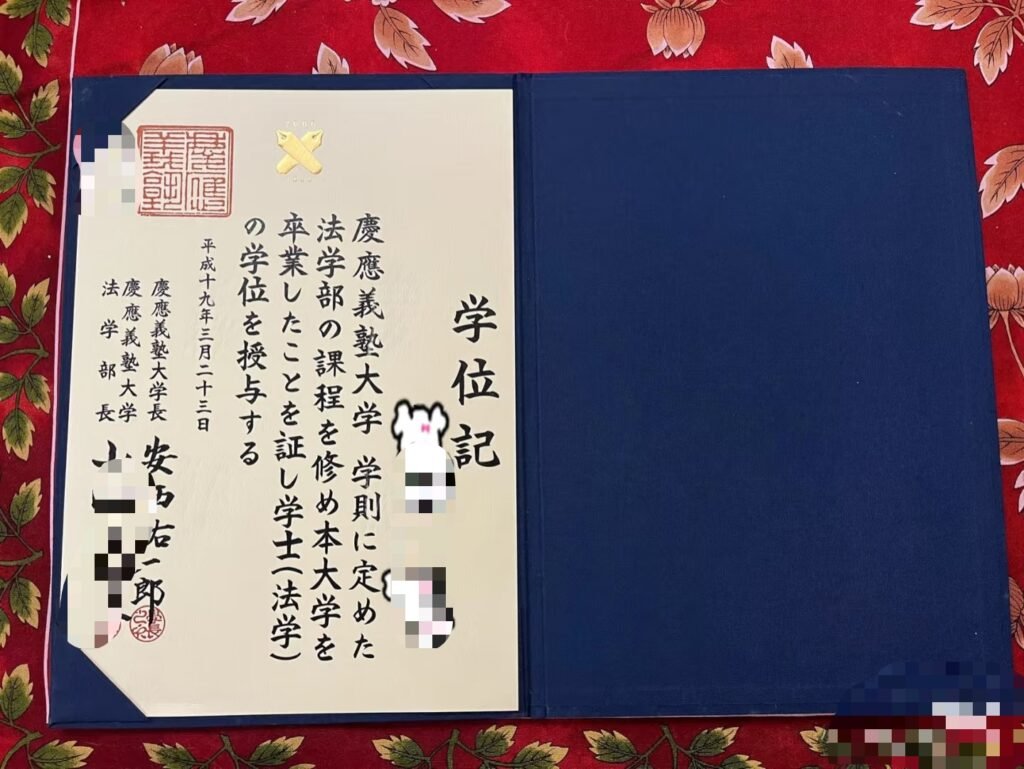 学位記
慶應義塾大学 学則に定めた
法学部の課程を修め本大学を
卒業したことを証し学士(法学)
の学位を授与する
平成十九年三月二十三日
慶應義塾大学長
安西右一郎
慶應義塾大学
法学部長
慶應
義塾